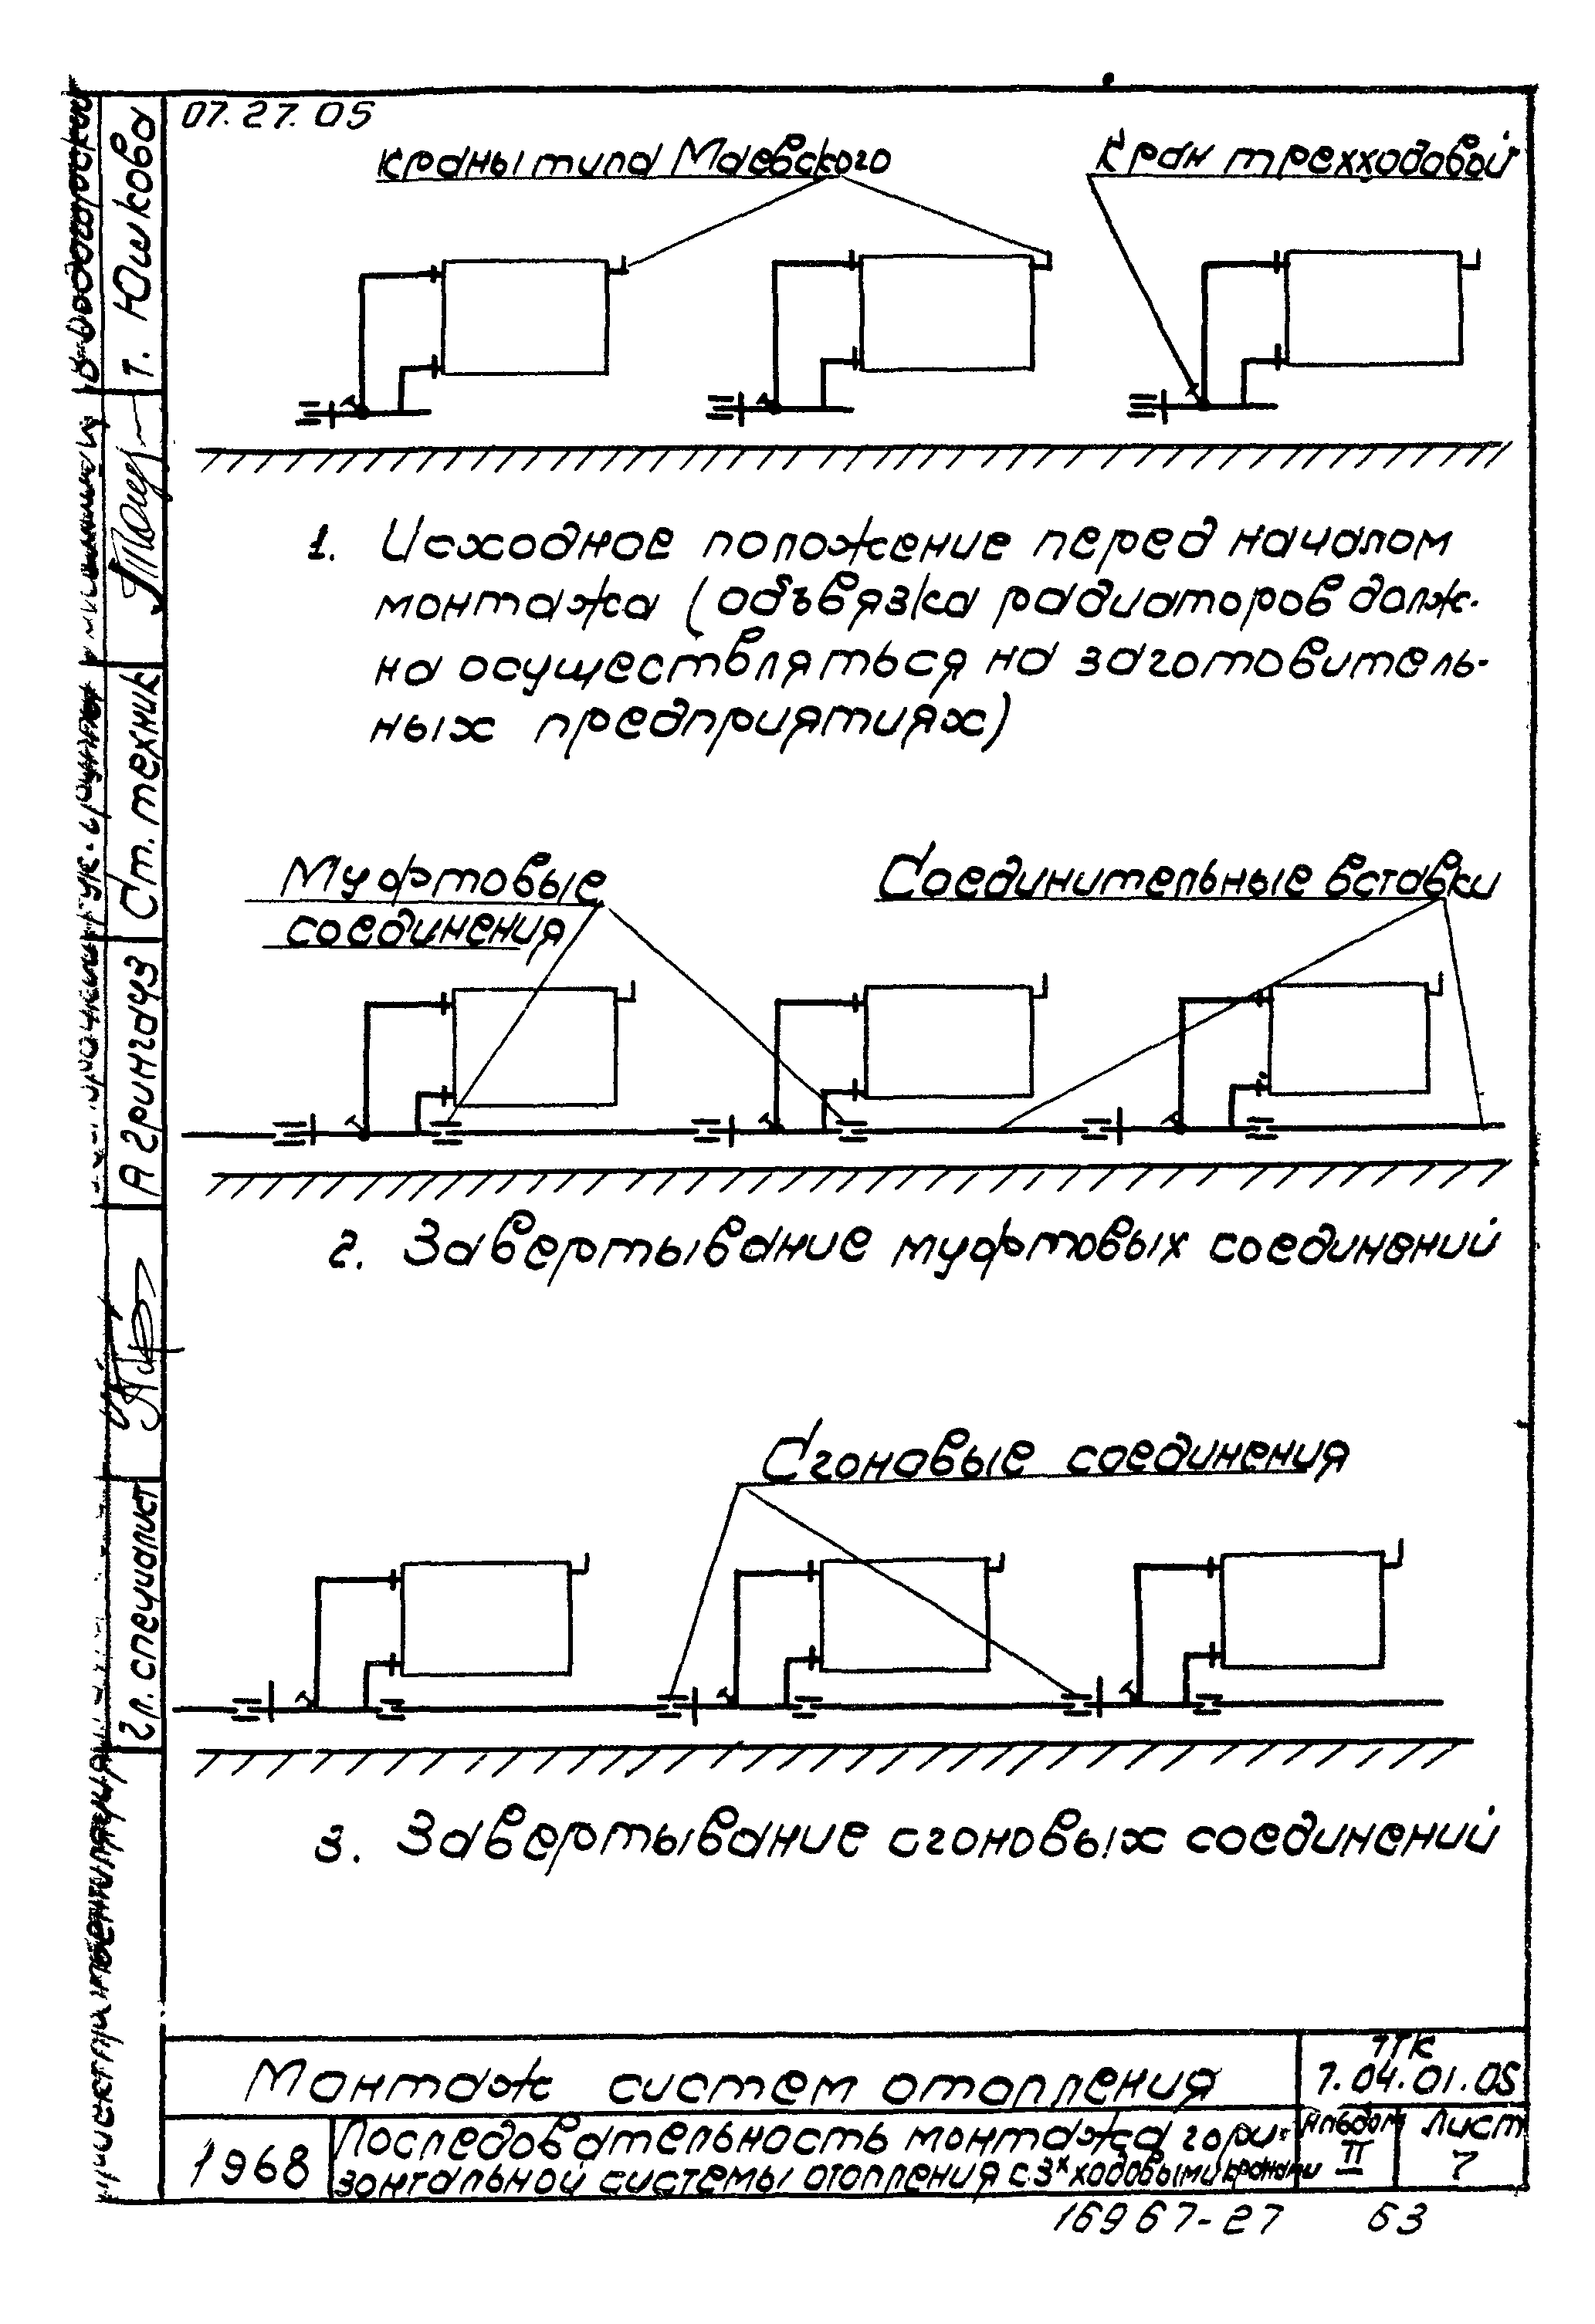 07.27.05
Краны типа Маевского
Кран трехходовой
1. Исходное положение перед началом
монтажа (объвязка радиаторов долж-
на осуществляться на заготовитель-
ных предприятиях)
Муфтовые
соединения
Соединительные вставки
2. Завертывание муфтовых соединений
Сгоновые соединения
3. Завертывание сгоновых соединений
Монтаж систем отопления
ТТК
7.04.01.05
1968
Последовательность монтажа гори-
зонтальной системы отопления с 3х ходовыми кранами
Альбом
II
Лист
7
16967-27 63
Т. Юшкова
Ст. техник
А Грингауз
Гл. специалист